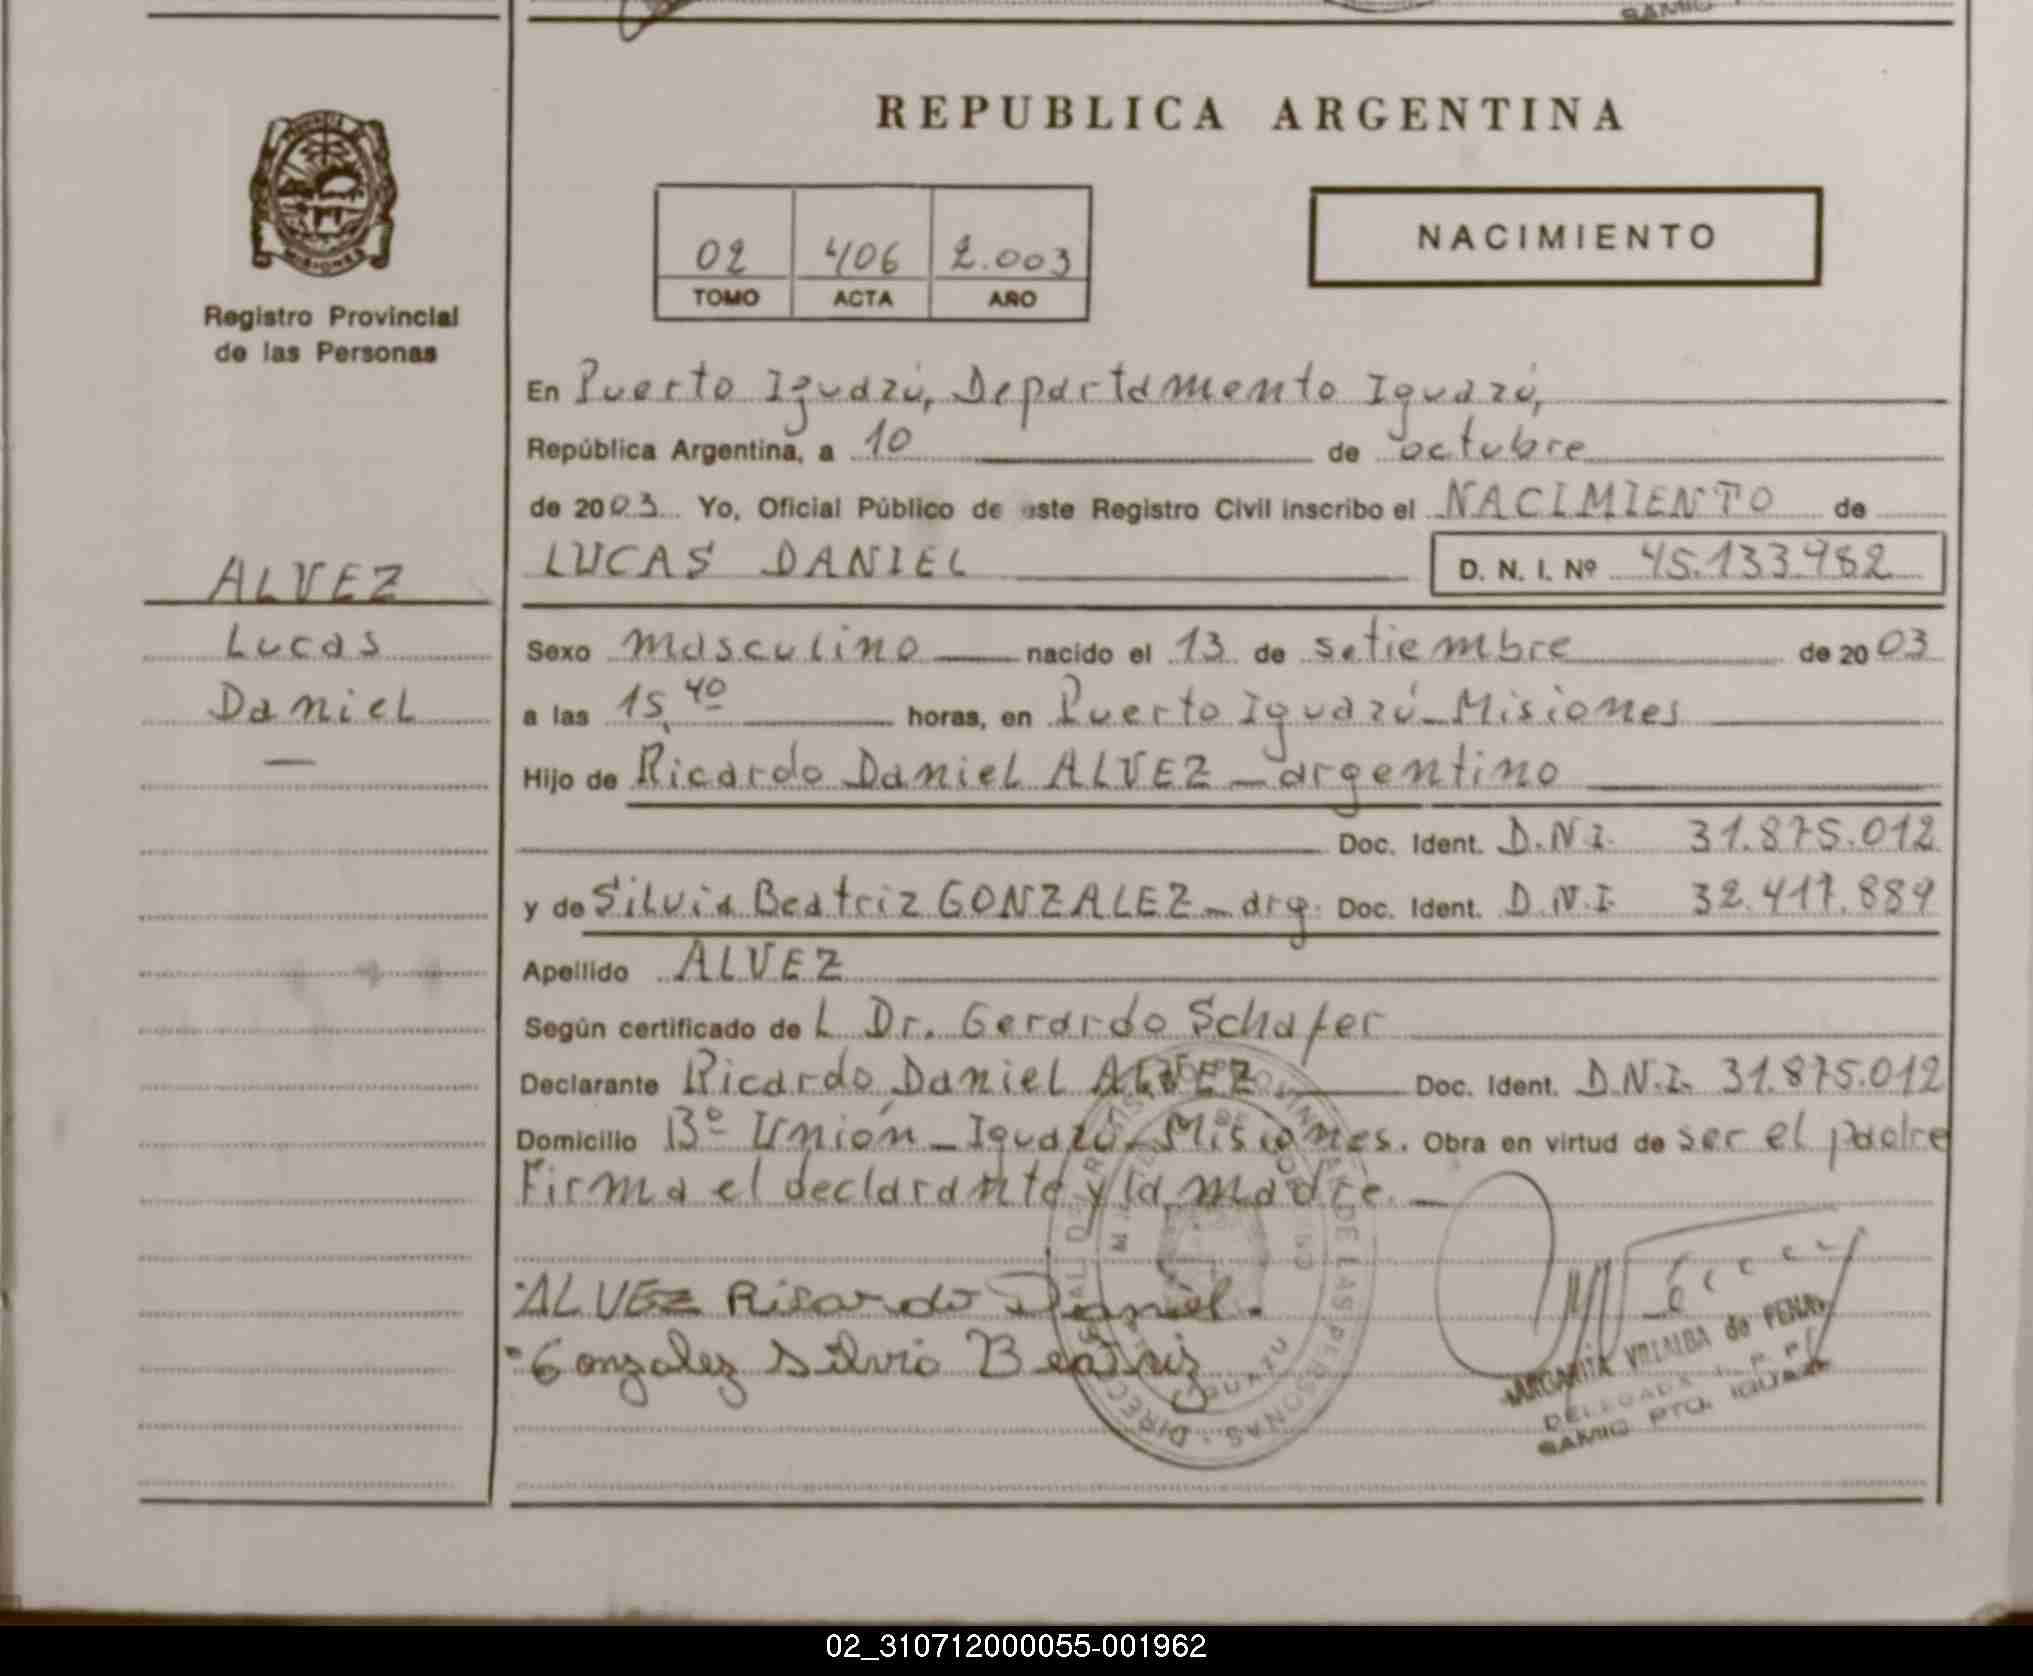 REPUBLICA ARGENTINA
MISIONES
Registro Provincial
de las Personas
02 406 2.003
TOMO ACTA AÑO
NACIMIENTO
En Puerto Iguazú, Departamento Iguazú,
República Argentina, a 10 de octubre
de 2003 Yo, Oficial Público de este Registro Civil inscribo el NACIMIENTO de
LUCAS DANIEL D. N. I. Nº 45.133.982
ALVEZ
Lucas
Daniel
Sexo masculino nacido el 13 de setiembre de 2003
a las 15,40 horas, en Puerto Iguazú - Misiones
Hijo de Ricardo Daniel ALVEZ - argentino
Doc. Ident. D.N.I. 31.875.012
y de Silvia Beatriz GONZALEZ - arg. Doc. Ident. D.N.I. 32.417.889
Apellido ALVEZ
Según certificado de L Dr. Gerardo Schafer
Declarante Ricardo Daniel ALVEZ Doc. Ident. D.N.I. 31.875.012
Domicilio Bº Unión - Iguazú - Misiones. Obra en virtud de ser el padre
Firma el declarante y la madre. -
ALVEZ Ricardo Daniel.
Gonzalez Silvia Beatriz
MARGARITA VILLALBA de PENA
DELEGADA R. P. P.
SAMIC PTO. IGUAZU
02_310712000055-001962